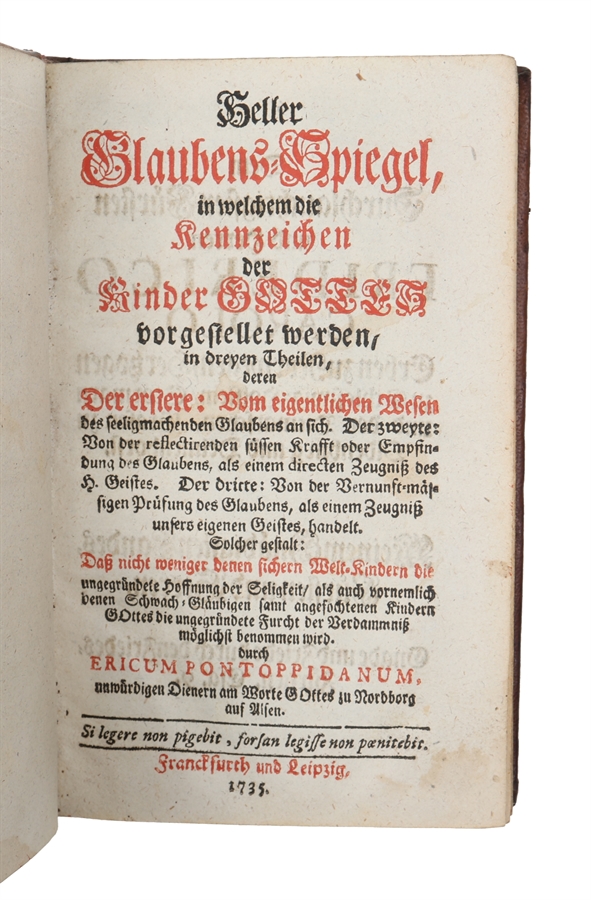 Heller
Glaubens-Spiegel,
in welchem die
Kennzeichen
der
Kinder GOTTES
vorgestellet werden/
in dreyen Theilen,
deren
Der erstere: Vom eigentlichen Wesen
des seeligmachenden Glaubens an sich. Der zweyte:
Von der reflectirenden süssen Krafft oder Empfin-
dung des Glaubens, als einem directen Zeugniß des
H. Geistes. Der dritte: Von der Vernunft-mäs-
sigen Prüfung des Glaubens, als einem Zeugniß
unsers eigenen Geistes, handelt.
Solcher gestalt:
Daß nicht weniger denen sichern Welt-Kindern die
ungegründete Hoffnung der Seligkeit/ als auch vornemlich
denen Schwach-Gläubigen samt angefochtenen Kindern
GOttes die ungegründete Furcht der Verdammniß
möglichst benommen wird.
durch
ERICUM PONTOPPIDANUM,
unwürdigen Dienern am Worte GOttes zu Nordborg
auf Alsen.
Si legere non pigebit, forsan legisse non pœnitebit.
Franckfurth und Leipzig,
1735.